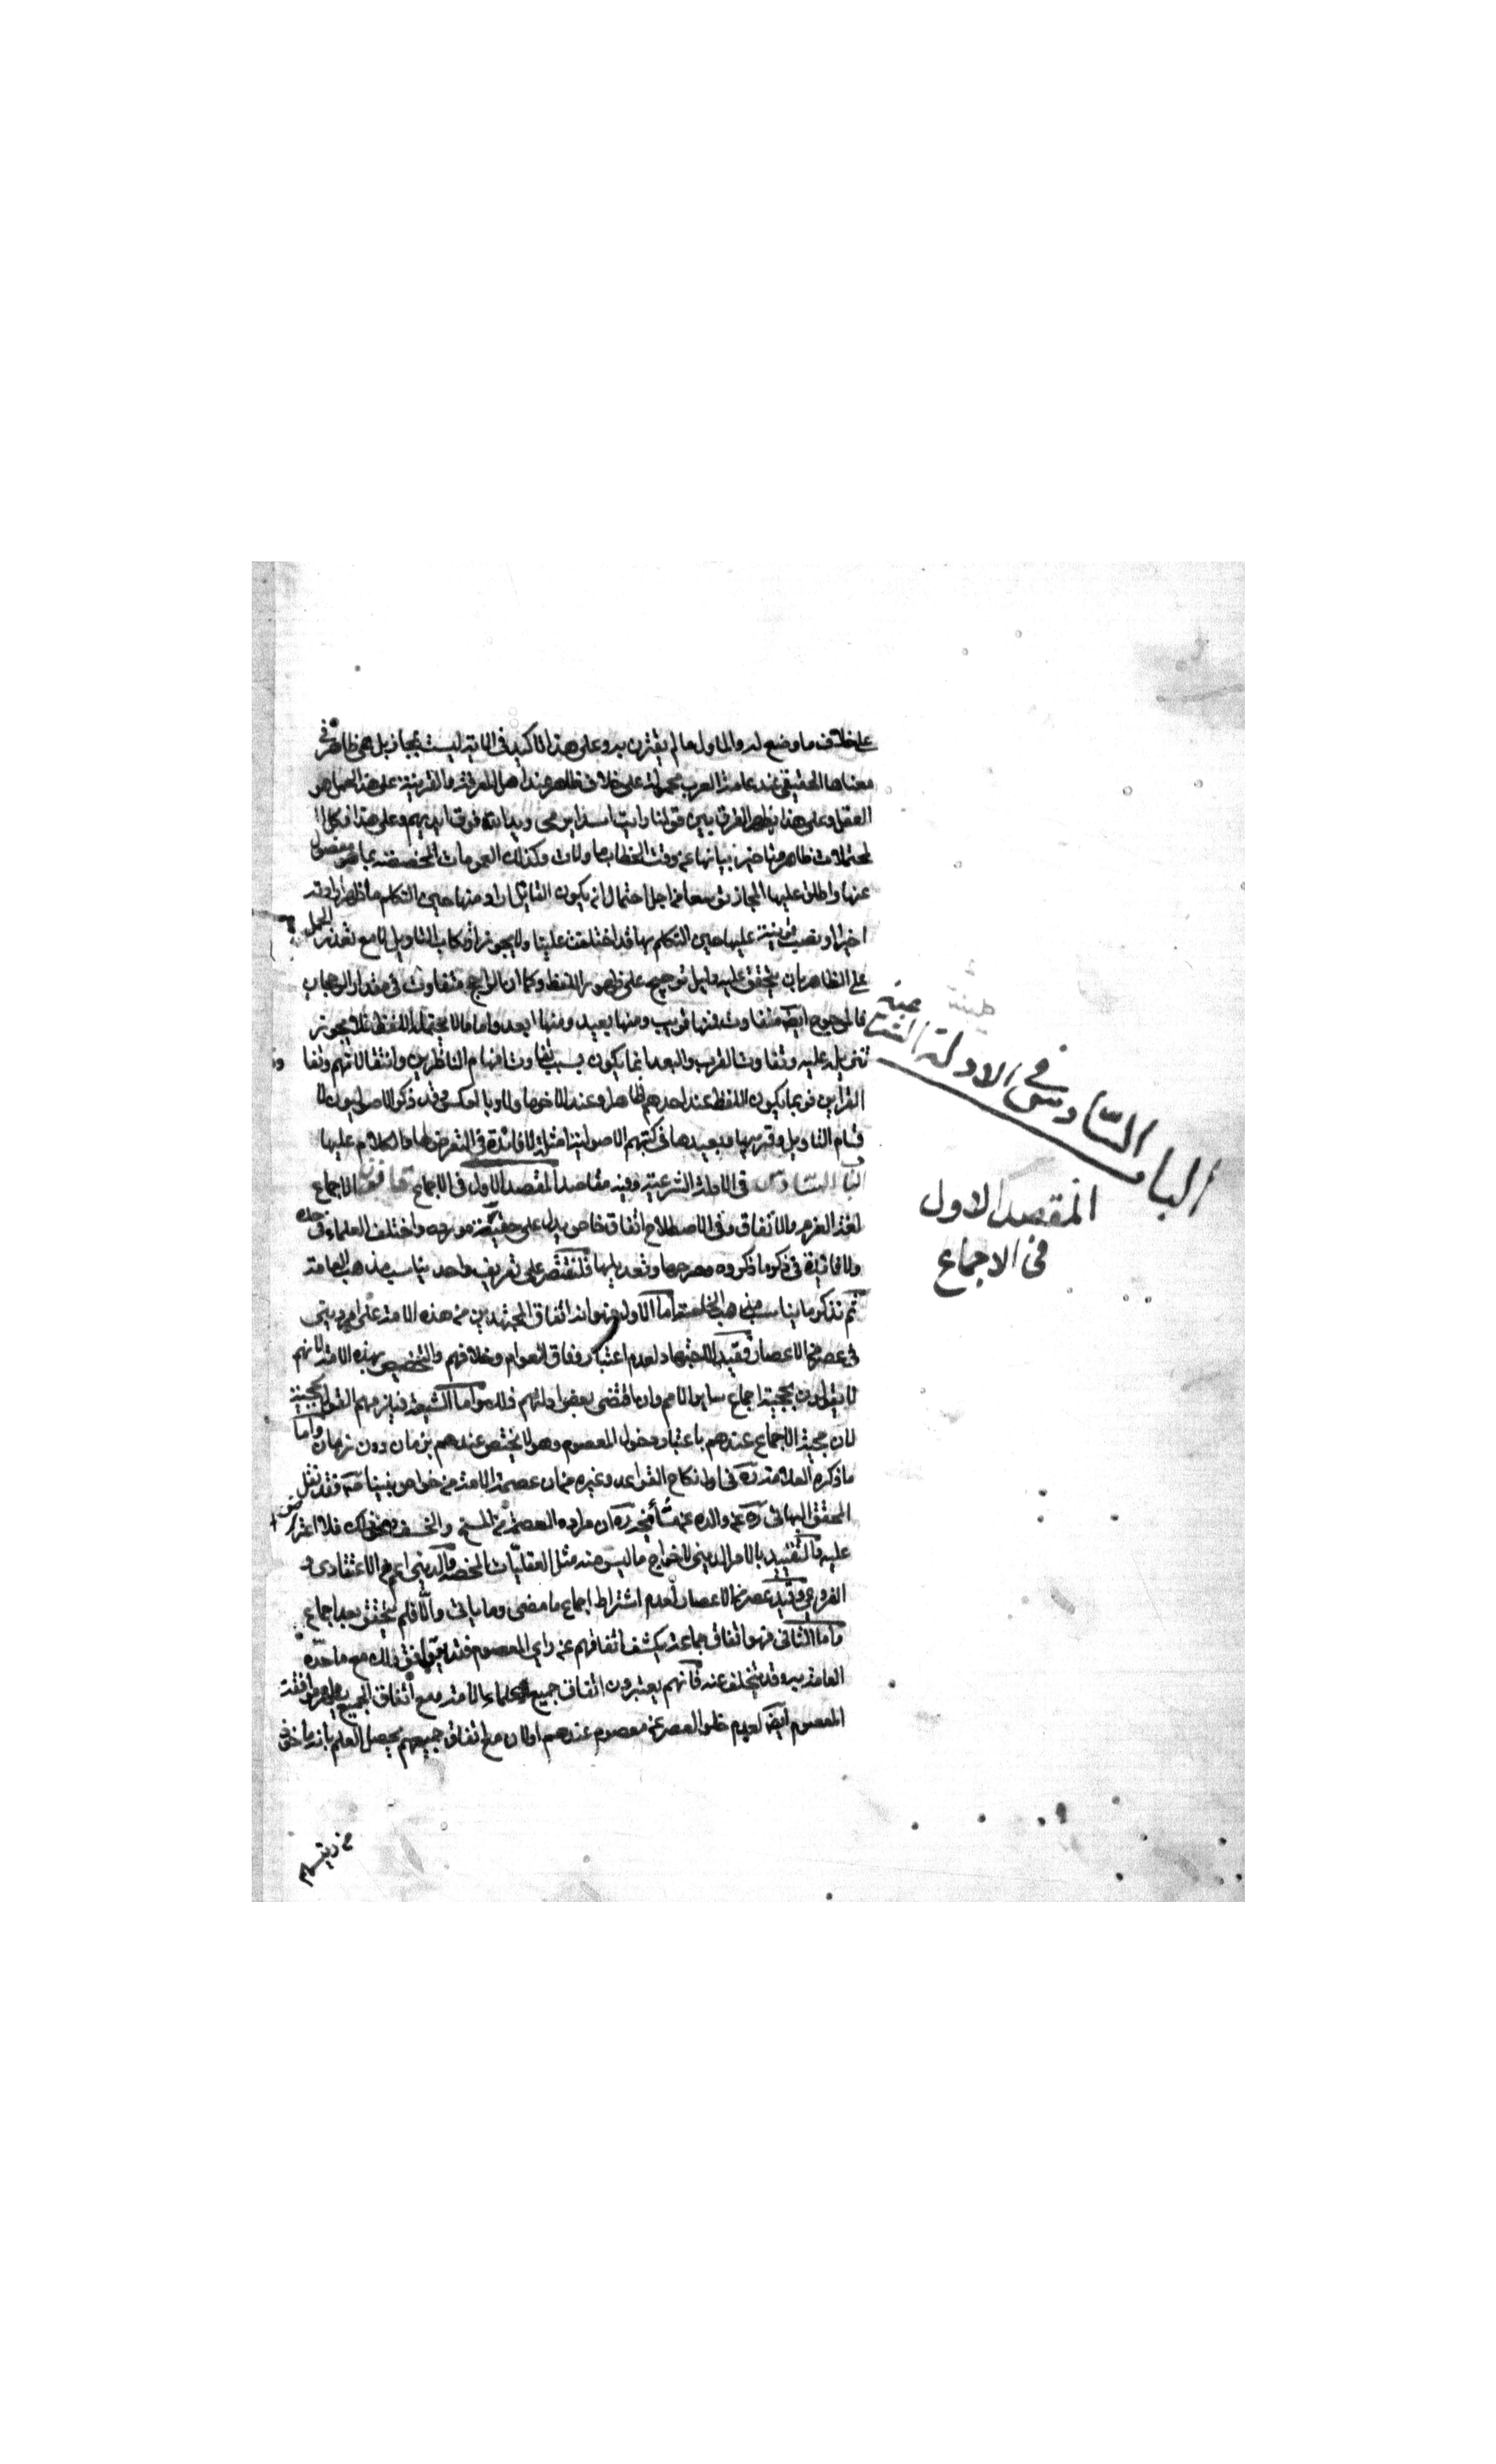 على خلاف ما وضع له والماول ما لم يقترن به وعلى هذا فالاكيد في الاية ليست بمجاز بل هي ظاهرة في
معناها الحقيقي عند عامة العرب محمولة على خلاف ظاهر عند اهل المعرفة والقرينة على هذا الحمل هو
العقل وعلى هذا يظهر الفرق بين قولنا رايت اسدا يرمى ويد الله فوق ايديهم وعلى هذا فكل
محتملات ظاهر وتاخير بيانها عن وقت الخطاب ماولات وكذلك العمومات المخصصة بما هو مفصول
عنها واطلق عليها المجاز توسعا من اجل احتمال ان يكون القائل اراد منها حين التكلم ما ظهر ارادته
اخيرا ونصب قرينة عليها حين التكلم بها قد اختلفت علينا ولا يجوز ارتكاب التاويل الا مع تعذر الحمل
على الظاهر بان يتحقق عليه دليل ترجيح على ظهور اللفظ وكما ان الراجح متفاوت في مقدار الرجحان
فالمرجوح ايضا متفاوت فمنها قريب ومنها بعيد ومنها ابعد واما ما لا يحتمله اللفظ فلا يجوز
تنزيله عليه وتفاوت القرب والبعد انما يكون بسبب تفاوت افهام الناظرين وانتقالاتهم وتفا
القراين فربما يكون اللفظ عند احدهم ظاهرا وعند الاخر ماولا وبالعكس وقد ذكر الاصوليون لا
قسام التاويل وقريبها وبعيدها في كتبهم الاصولية امثلة لا فائدة في التعرض لها والكلام عليها
الباب السادس في الادلة الشرعية وفيه مقاصد المقصد الاول في الاجماع قانون الاجماع
لغة العزم والاتفاق وفي الاصطلاح اتفاق خاص يدل على حقية مورده واختلف العلماء في حده
ولا فائدة في ذكر ما ذكروه وجرحها وتعديلها فلنقتصر على تعريف واحد يناسب مذهب العامة
ثم نذكر ما يناسب مذهب الخاصة اما الاول فهو انه اتفاق المجتهدين من هذه الامة على امر ديني
في عصر من الاعصار فقيد الاجتهاد لعدم اعتبار وفاق العوام وخلافهم والتخصيص بهذه الامة لانهم
لا يقولون بحجية اجماع ساير الامم وان اقتضى بعض ادلتهم ذلك واما الشيعة فيلزمهم القول بحجيته
لان حجية الاجماع عندهم باعتبار دخول المعصوم وهو لا يختص عندهم بزمان دون زمان واما
ما ذكره العلامة ره في اول نكاح القواعد وغيره من ان عصمة الامة من خواص نبينا ص فقد نقل
المحقق البهائي ره عن والده عن مشايخه ره ان مراده العصمة من المسخ والخسف ونحو ذلك فلا اعتراض
عليه والتقييد بالامر الديني لاخراج ما ليس منه مثل العقليات المحضة والديني اعم من الاعتقادي و
الفروعي وقيد عصر من الاعصار لعدم اشتراط اجماع ما مضى وما ياتي والا فلم يتحقق بعد اجماع
واما الثاني فهو اتفاق جماعة يكشف اتفاقهم عن راي المعصوم فقد يوافق ذلك مع ما حده
العامة به وقد يتخلف عنه فانهم يعتبرون اتفاق جميع علماء الامة ومع اتفاق الجميع يظهر موافقة
المعصوم ايضا لعدم خلو العصر عن معصوم عندهم او لان مع اتفاق جميعهم يحصل العلم بانه ماخوذ
من رئيسهم
الباب السادس في الادلة الشرعية
المقصد الاول
في الاجماع